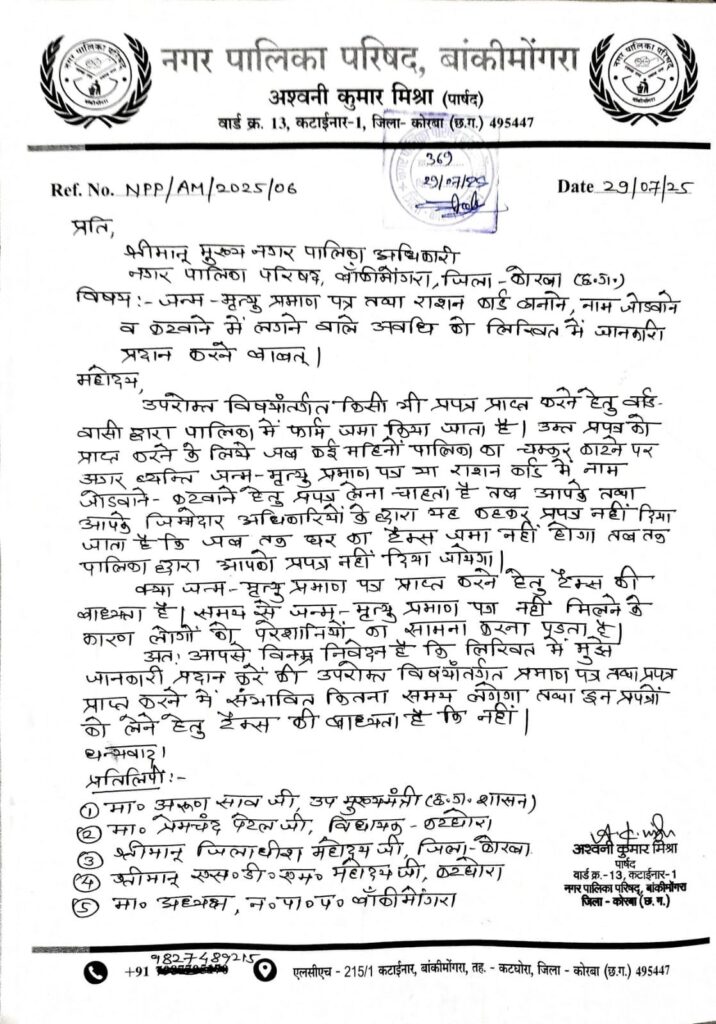 नगर पालिका परिषद, बांकीमोंगरा
अश्वनी कुमार मिश्रा (पार्षद)
वार्ड क्र. 13, कटाईनार-1, जिला- कोरबा (छ.ग.) 495447
369
29/07/25
Ref. No. NPP/AM/2025/06
Date 29/07/25
प्रति,
श्रीमान् मुख्य नगर पालिका अधिकारी
नगर पालिका परिषद, बाँकीमोंगरा, जिला - कोरबा (छ.ग.)
विषय:- जन्म-मृत्यु प्रमाण पत्र तथा राशन कार्ड बनाने, नाम जोडवाने
व कटवाने में लगने वाले अवधि को लिखित में जानकारी
प्रदान करने बाबत् |
महोदय,
उपरोक्त विषयांतर्गत किसी भी प्रपत्र प्राप्त करने हेतु वार्ड-
वासी द्वारा पालिका में फार्म जमा किया जाता है | उक्त प्रपत्र को
प्राप्त करने के लिये जब कई महिनों पालिका का चक्कर काटने पर
अगर व्यक्ति जन्म-मृत्यु प्रमाण पत्र या राशन कार्ड में नाम
जोडवाने - कटवाने हेतु प्रपत्र लेना चाहता है तब आपके तथा
आपके जिम्मेदार अधिकारियों के द्वारा यह कहकर प्रपत्र नहीं दिया
जाता है कि जब तक घर का टैक्स जमा नहीं होगा तब तक
पालिका द्वारा आपको प्रपत्र नहीं दिया जायेगा |
क्या जन्म-मृत्यु प्रमाण पत्र प्राप्त करने हेतु टैक्स की
बाध्यता है | समय से जन्म-मृत्यु प्रमाण पत्र नहीं मिलने के
कारण लोगों को परेशानियों का सामना करना पड़ता है |
अतः आपसे विनम्र निवेदन है कि लिखित में मुझे
जानकारी प्रदान करें की उपरोक्त विषयांतर्गत प्रमाण पत्र तथा प्रपत्र
प्राप्त करने में संभावित कितना समय लगेगा तथा इन प्रपत्रों
को लेने हेतु टैक्स की बाध्यता है कि नहीं |
धन्यवाद |
प्रतिलिपी:-
① मा० अरुण साव जी, उप मुख्यमंत्री (छ.ग. शासन)
② मा० प्रेमचंद पटेल जी, विधायक - कटघोरा
③ श्रीमान् जिलाधीश महोदय जी, जिला - कोरबा
④ श्रीमान् एस० डी० एम० महोदय जी, कटघोरा
⑤ मा० अध्यक्ष, न० पा० प० बाँकीमोंगरा
अश्वनी कुमार मिश्रा
पार्षद
वार्ड क्र.-13, कटाईनार-1
नगर पालिका परिषद्, बांकीमोंगरा
जिला - कोरबा (छ.ग.)
9827489215
+91
एलसीएच - 215/1 कटाईनार, बांकीमोंगरा, तह. - कटघोरा, जिला - कोरबा (छ.ग.) 495447